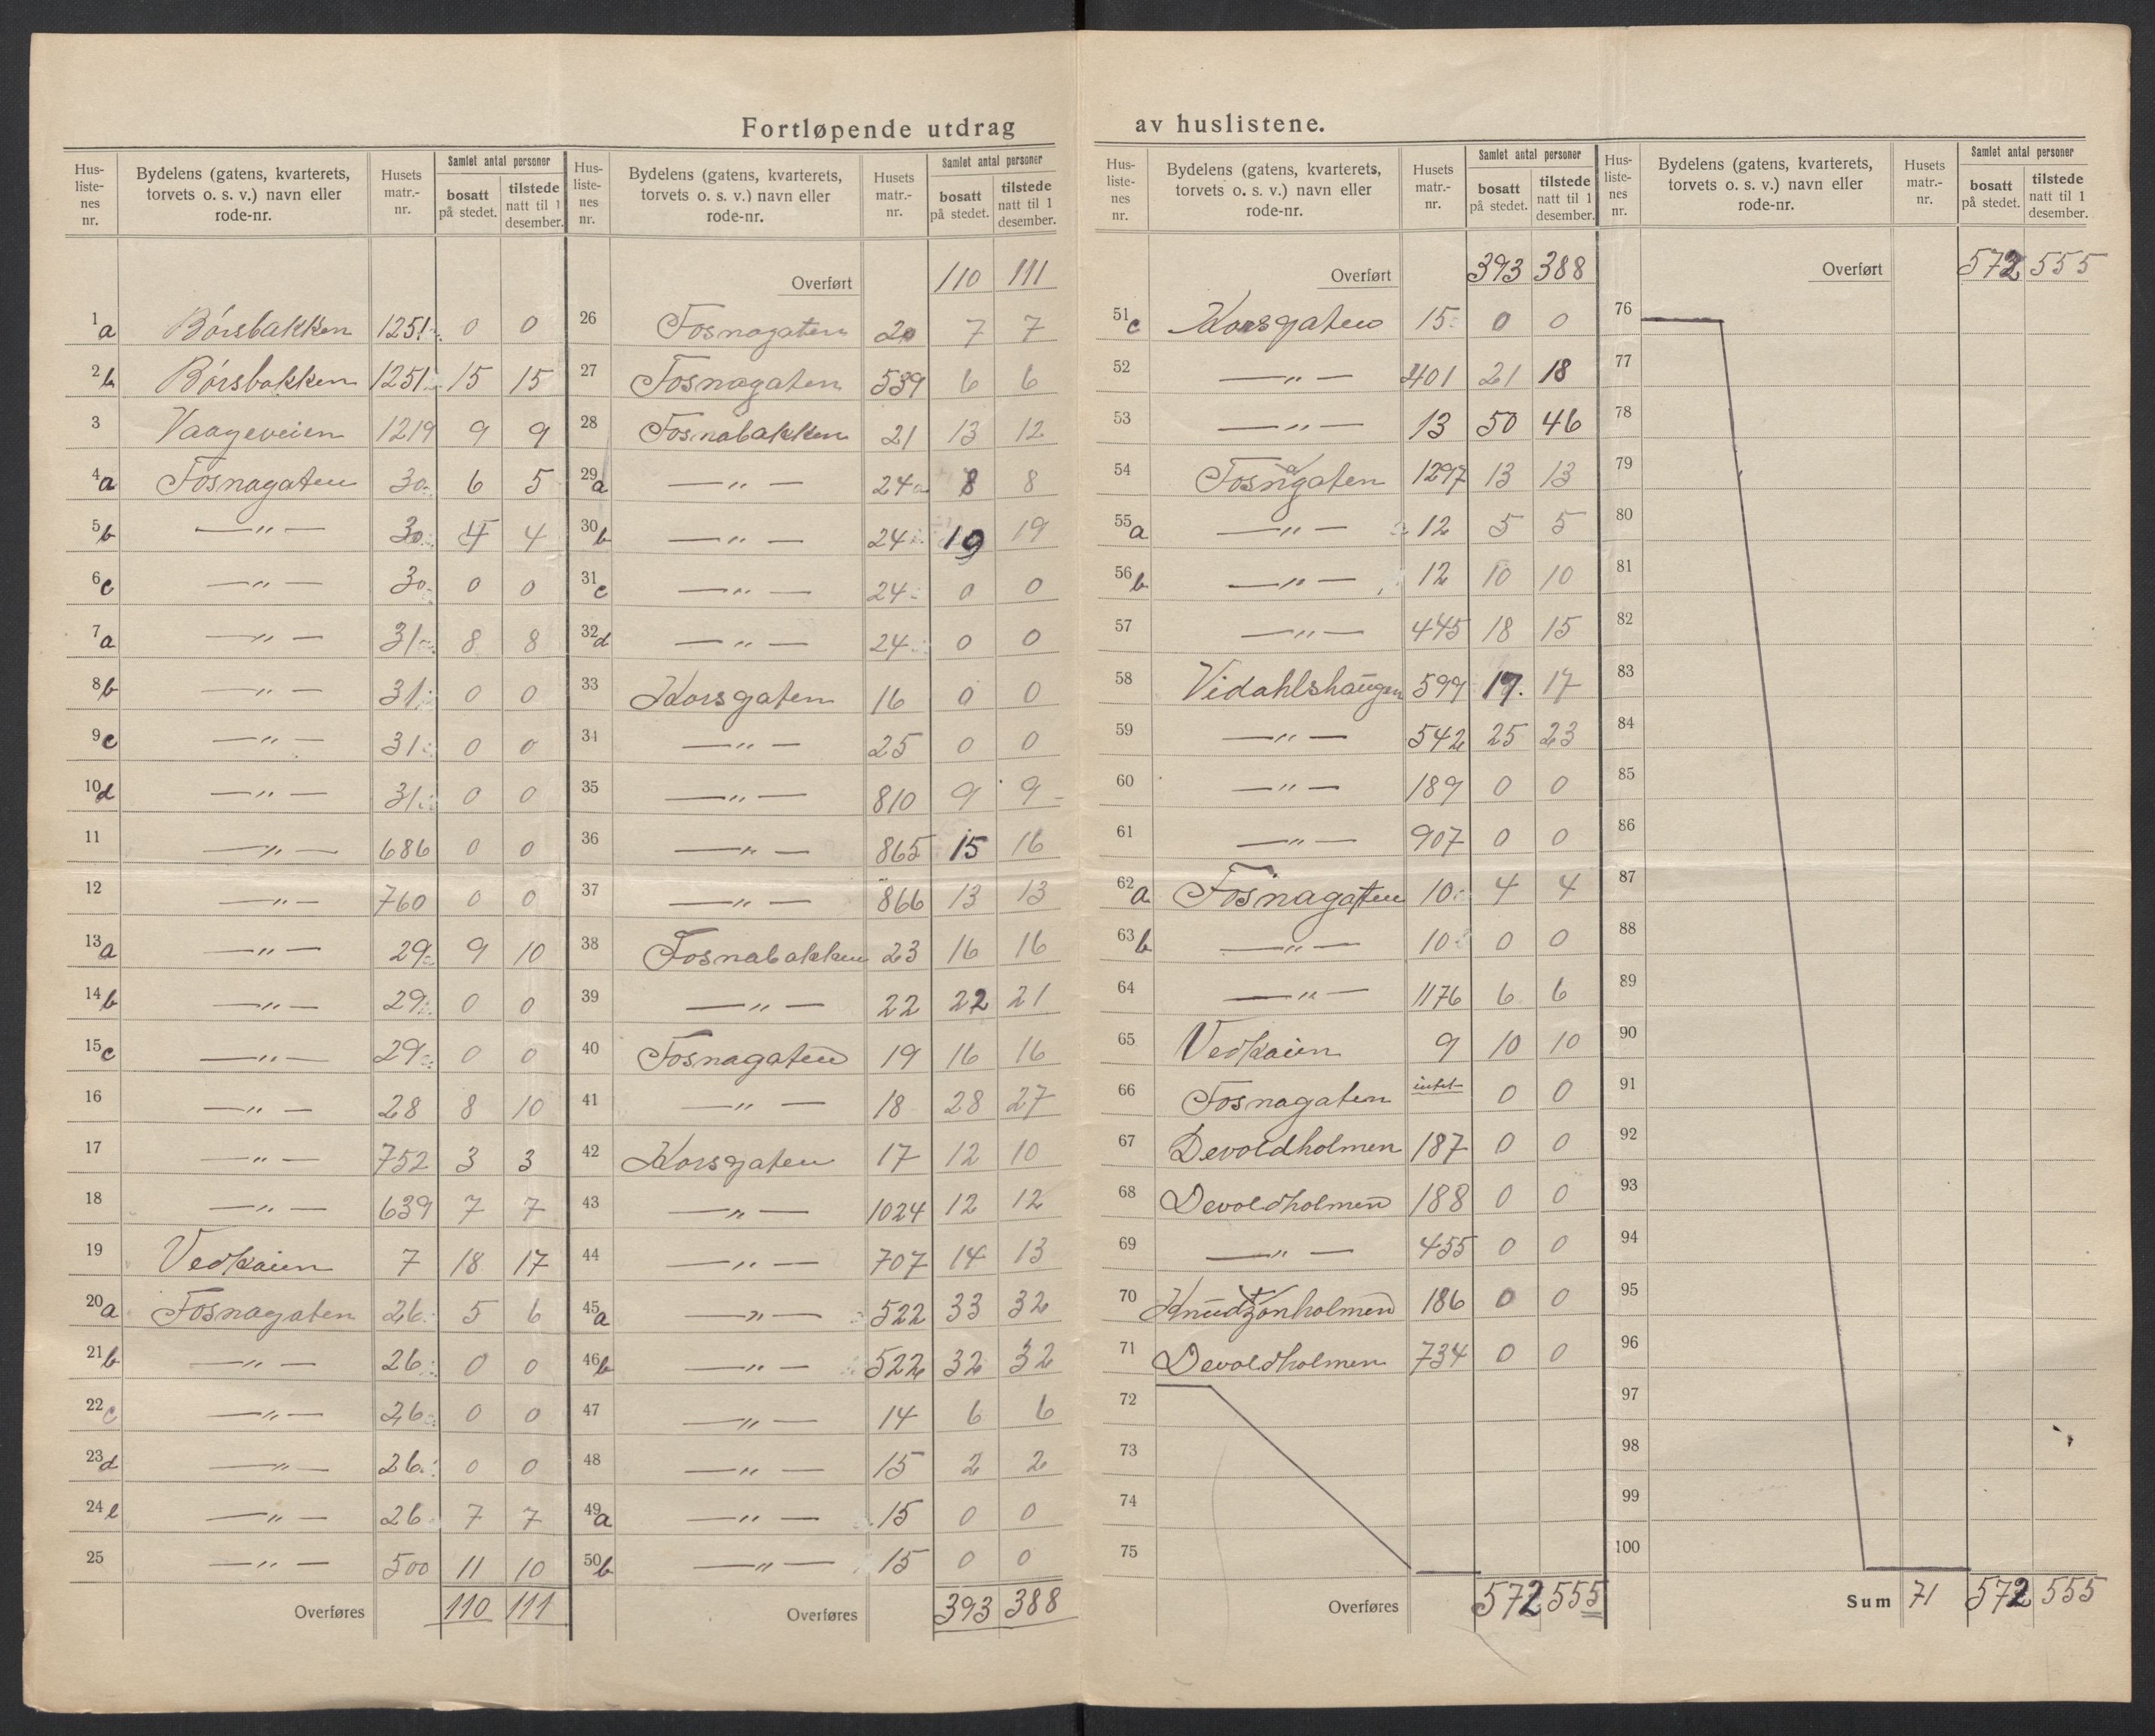 Fortløpende utdrag av huslistene.
Hus-
liste-
nes
nr.
Bydelens (gatens, kvarterets,
torvets o. s. v.) navn eller
rode-nr.
Husets
matr.-
nr.
Samlet antal personer
bosatt
på stedet.
tilstede
natt til 1
desember.
1a Børsbakken 1251 0 0
2b Børsbakken 1251 15 15
3 Vaageveien 1219 9 9
4a Fosnagaten 30 6 5
5b —„— 30 4 4
6c —„— 30 0 0
7a —„— 31 8 8
8b —„— 31 0 0
9c —„— 31 0 0
10d —„— 31 0 0
11 —„— 686 0 0
12 —„— 760 0 0
13a —„— 29 9 10
14b —„— 29 0 0
15c —„— 29 0 0
16 —„— 28 8 10
17 —„— 752 3 3
18 —„— 639 7 7
19 Vedkaien 7 18 17
20a Fosnagaten 26 5 6
21b —„— 26 0 0
22c —„— 26 0 0
23d —„— 26 0 0
24e —„— 26 7 7
25 —„— 500 11 10
Overføres 110 111
Hus-
liste-
nes
nr.
Bydelens (gatens, kvarterets,
torvets o. s. v.) navn eller
rode-nr.
Husets
matr.-
nr.
Samlet antal personer
bosatt
på stedet.
tilstede
natt til 1
desember.
Overført 110 111
26 Fosnagaten 20 7 7
27 Fosnagaten 539 6 6
28 Fosnabakken 21 13 12
29a —„— 24a 8 8
30b —„— 24 19 19
31c —„— 24 0 0
32d —„— 24 0 0
33 Korsgaten 16 0 0
34 —„— 25 0 0
35 —„— 810 9 9
36 —„— 865 15 16
37 —„— 866 13 13
38 Fosnabakken 23 16 16
39 —„— 22 22 21
40 Fosnagaten 19 16 16
41 —„— 18 28 27
42 Korsgaten 17 12 10
43 —„— 1024 12 12
44 —„— 707 14 13
45a —„— 522 33 32
46b —„— 522 32 32
47 —„— 14 6 6
48 —„— 15 2 2
49a —„— 15 0 0
50b —„— 15 0 0
Overføres 393 388
Hus-
liste-
nes
nr.
Bydelens (gatens, kvarterets,
torvets o. s. v.) navn eller
rode-nr.
Husets
matr.-
nr.
Samlet antal personer
bosatt
på stedet.
tilstede
natt til 1
desember.
Overført 393 388
51c Korsgaten 15 0 0
52 —„— 401 21 18
53 —„— 13 50 46
54 Fosnagaten 1297 13 13
55a —„— 12 5 5
56b —„— 12 10 10
57 —„— 445 18 15
58 Vidahlshaugen 599 17. 17
59 —„— 542 25 23
60 —„— 189 0 0
61 —„— 907 0 0
62a Fosnagaten 10 4 4
63b —„— 10 0 0
64 —„— 1176 6 6
65 Vedkaien 9 10 10
66 Fosnagaten intet 0 0
67 Devoldholmen 187 0 0
68 Devoldholmen 188 0 0
69 —„— 455 0 0
70 Knudtzonholmen 186 0 0
71 Devoldholmen 734 0 0
72
73
74
75
Overføres 572 555
Hus-
liste-
nes
nr.
Bydelens (gatens, kvarterets,
torvets o. s. v.) navn eller
rode-nr.
Husets
matr.-
nr.
Samlet antal personer
bosatt
på stedet.
tilstede
natt til 1
desember.
Overført 572 555
76
77
78
79
80
81
82
83
84
85
86
87
88
89
90
91
92
93
94
95
96
97
98
99
100
Sum 71 572 555